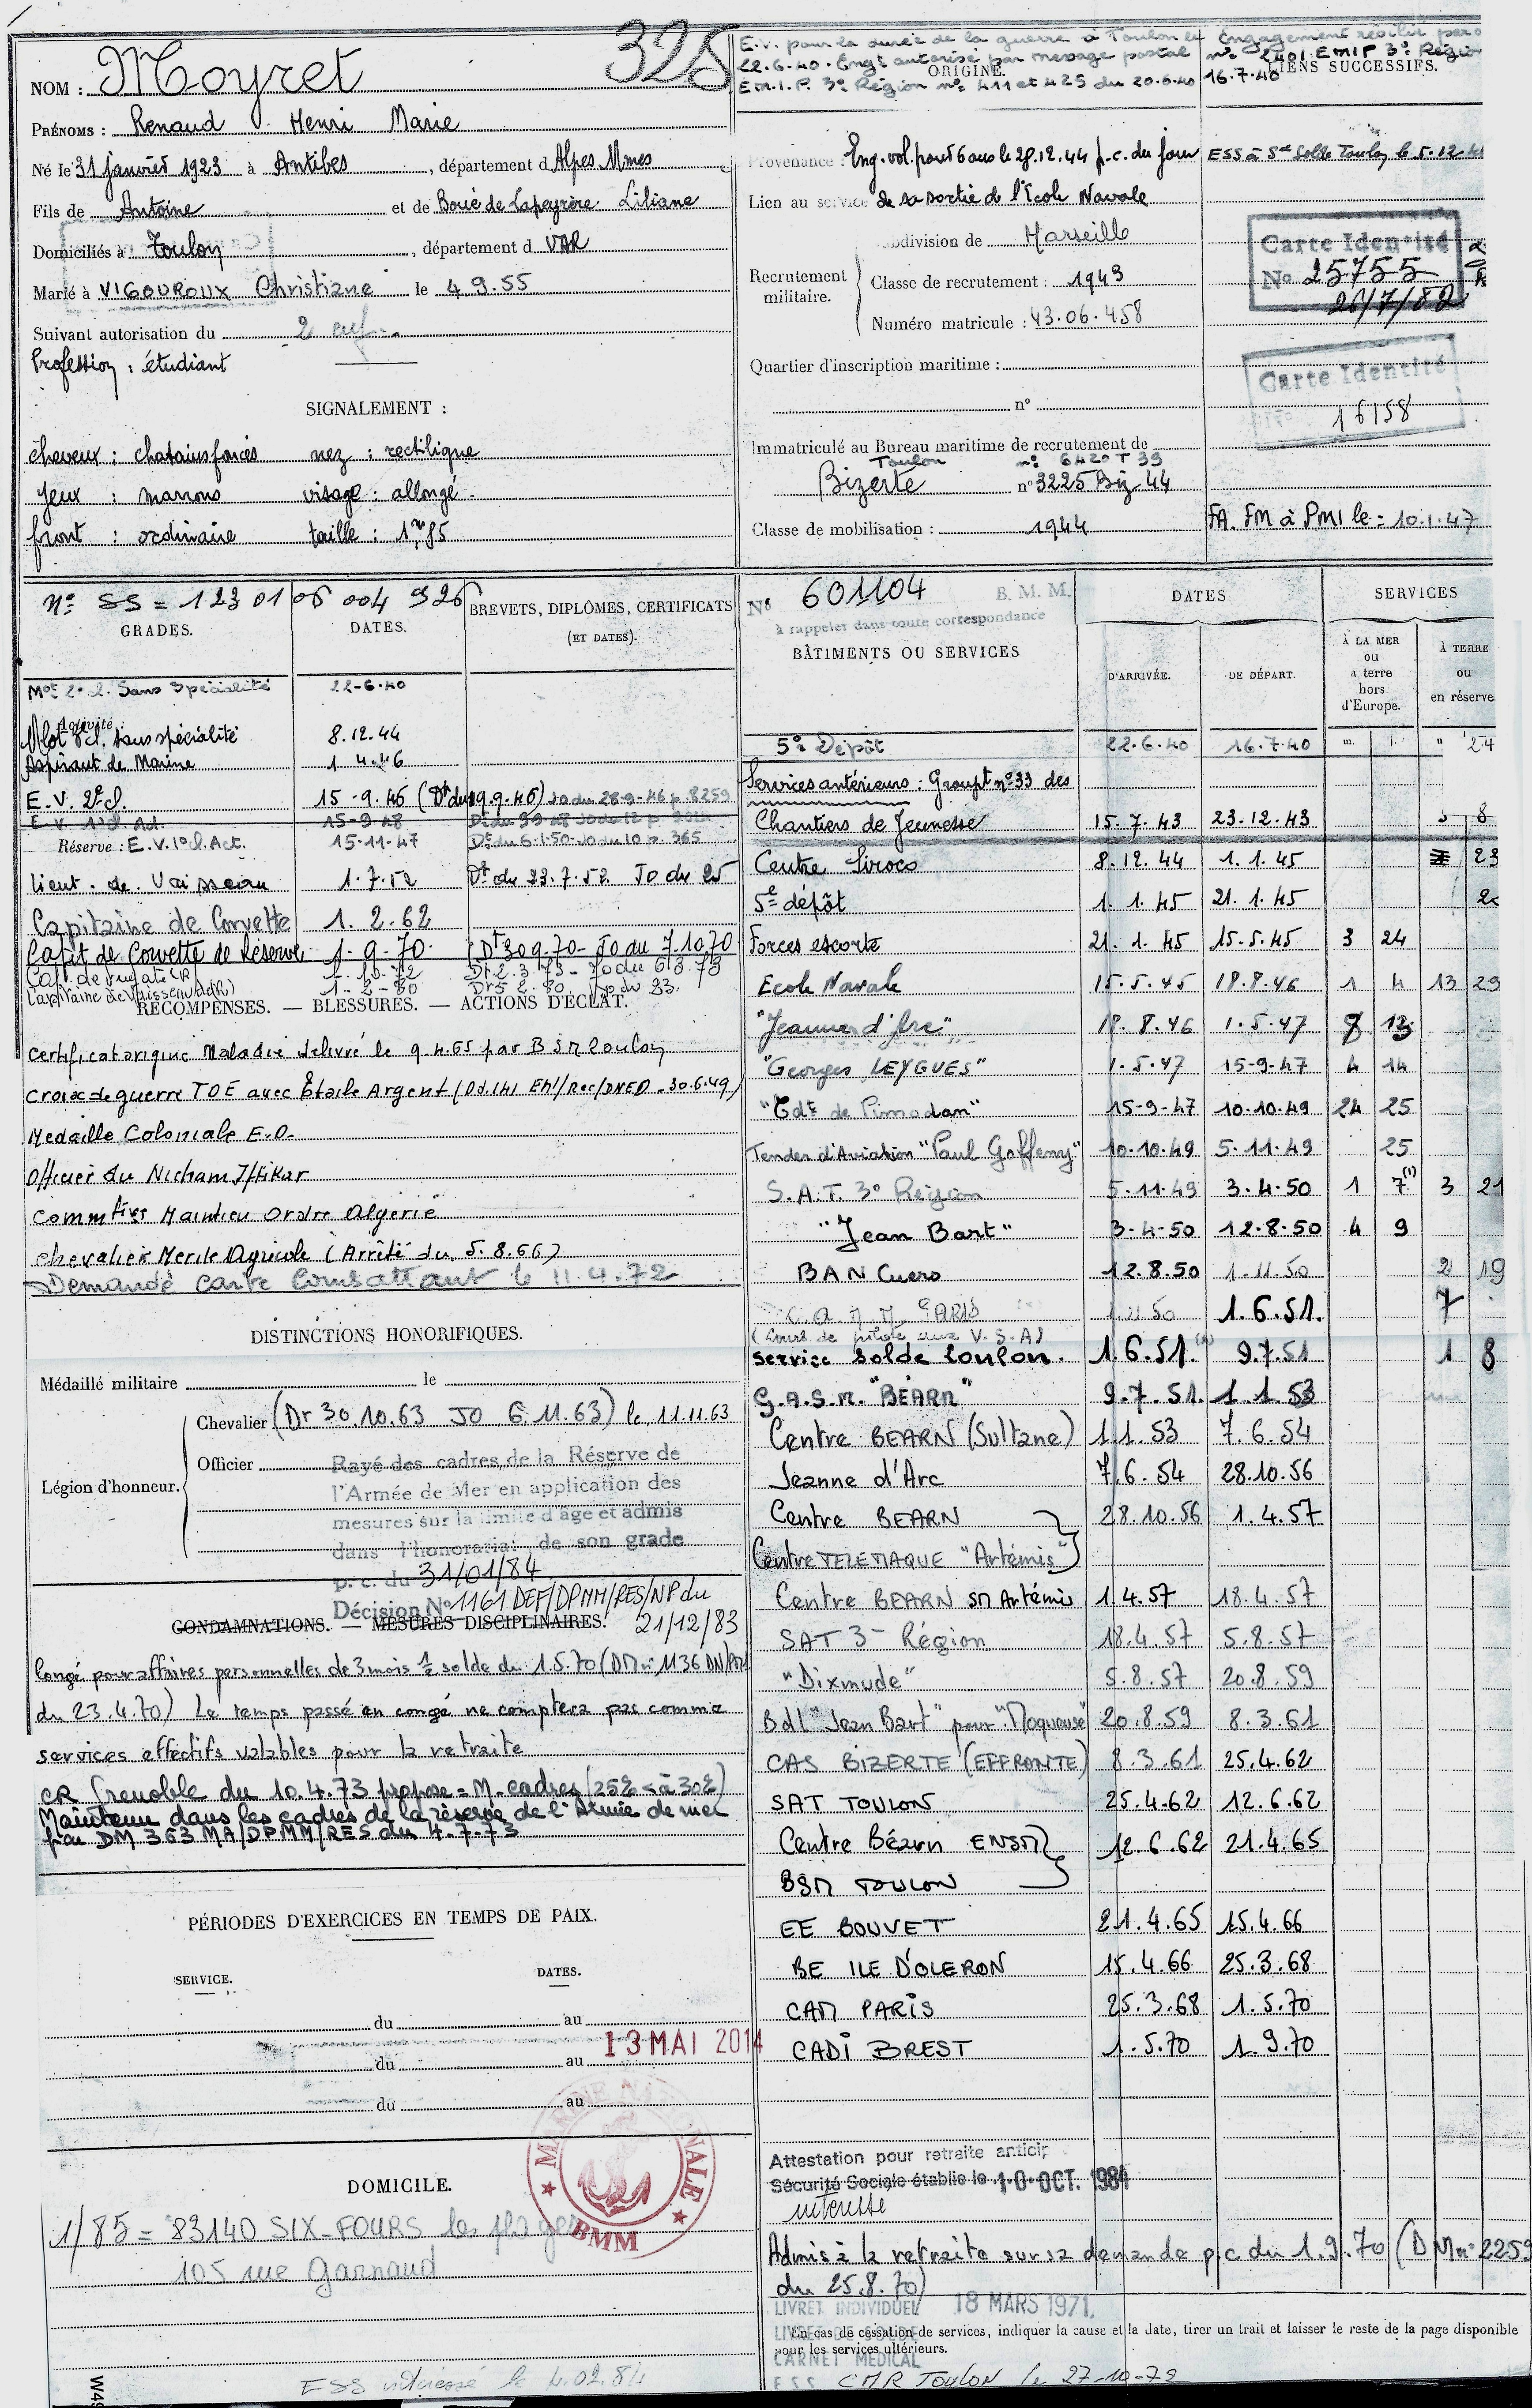 325
NOM : Moyret
PRÉNOMS : Renaud Henri Marie
Né le 31 janvier 1923 à Antibes, département d Alpes Mmes
Fils de Antoine et de Boué de Lapeyrère Liliane
Domiciliés à Toulon, département d VAR
Marié à VIGOUROUX Christiane le 4 9.55
Suivant autorisation du 2 enf.
Profession : étudiant
SIGNALEMENT :
cheveux : chatains foncés nez : rectiligne
yeux : marrons visage : allongé
front : ordinaire taille : 1m85
E.V. pour la durée de la guerre à Toulon le
22.6.40. Engt autorisé par message postal
E.M.I.P. 3e Région nos 411 et 425 du 20.6.40
ORIGINE.
Engagement résilié par
n° 2401 EMIP 3e Région
16.7.40
LIENS SUCCESSIFS.
Provenance : Eng. vol. pour 6 ans le 28.12.44 p.c. du jour
ESS à Sce Solde Toulon le 5.12.41
Lien au service de sa sortie de l'Ecole Navale
Subdivision de Marseille
Recrutement militaire.
Classe de recrutement : 1943
Numéro matricule : 43.06.458
Carte Identité
No 25755
26/7/82
Quartier d'inscription maritime :
n°
Carte Identité
16158
Immatriculé au Bureau maritime de recrutement de
Toulon n° 6420 T 39
Bizerte n° 3225 Biz 44
Classe de mobilisation : 1944
FA. FM à PM1 le = 10.1.47
N° SS = 1 23 01 06 004 926
GRADES.
DATES.
BREVETS, DIPLÔMES, CERTIFICATS
(ET DATES).
Mot 2e cl. Sans Spécialité 22-6-40
Activité :
Mlot 2cl. sans spécialité 8.12.44
Aspirant de Marine 1 4.46
E.V. 2e cl. 15-9.46 (Dt du 19.9.46) JO du 28-9-46 p. 8259
E.V. 1e cl. Act. 15-9-48
Réserve : E.V. 1e cl. Act. 15-11-47 Dt du 6-1-50 JO du 10 p. 365
Lieut. de Vaisseau 1.7.52 Dt du 23.7.52 JO du 25
Capitaine de Corvette 1. 2.62
Capit de Corvette de Réserve 1-9-70. (Dt 30 9.70 - JO du 7.10.70
Cap. de frégate (R) 1-10-72 Dt 2.3.73 - JO du 6 3 73
Capitaine de Vaisseau (R) 1-2-80 Dr 5 2.80
RÉCOMPENSES. — BLESSURES. — ACTIONS D'ÉCLAT.
Certificat origine Maladie délivré le 9.4.65 par BSM Toulon
Croix de guerre TOE avec Étoile Argent (Od.141 EM/Rec/DNEO - 30.6.49)
Medaille Coloniale E.O.
Officier du Nicham Iftikar
Commtive Maintien Ordre Algérie
Chevalier Merite Agricole (Arrêté du 5.8.66)
Demandé carte Combattant le 11.4.72
DISTINCTIONS HONORIFIQUES.
Médaillé militaire le
Légion d'honneur.
Chevalier (Dr 30.10.63 JO 6.11.63) le 11.11.63
Officier
Rayé des cadres de la Réserve de
l'Armée de Mer en application des
mesures sur la limite d'âge et admis
dans l'honorariat de son grade
p. c. du 31/01/84
Décision N° 1161 DEF/DPMM/RES/NP du
21/12/83
CONDAMNATIONS. — MESURES DISCIPLINAIRES.
Congé pour affaires personnelles de 3 mois ½ solde du 1.5.70 (DM n° 1136 DN/PM1
du 23.4.70) Le temps passé en congé ne comptera pas comme
services effectifs valables pour la retraite
CR Grenoble du 10.4.73 propose = M. cadres (25% < à 30%)
Maintenu dans les cadres de la réserve de l'Armée de mer
par DM 363 MA/DPMM/RES du 4.7.73
PÉRIODES D'EXERCICES EN TEMPS DE PAIX.
SERVICE.
DATES.
du au
du au
du au
13 MAI 2014
MARINE NATIONALE
BMM
DOMICILE.
1/85 = 83140 SIX-FOURS les plages
105 rue Garnaud
ESS intéressé le 4.02.84
N° 601104 B.M.M.
à rappeler dans toute correspondance
BÂTIMENTS OU SERVICES
DATES
D'ARRIVÉE.
DE DÉPART.
SERVICES
À LA MER
ou
à terre
hors
d'Europe.
À TERRE
ou
en réserve
5e Dépôt 22.6.40 16.7.40 24
Services antérieurs : Groupt n°33 des
Chantiers de Jeunesse 15.7.43 23.12.43 5 8
Centre Siroco 8.12.44 1.1.45 23
5e dépôt 1.1.45 21.1.45
Forces escorte 21.1.45 15.5.45 3 24
Ecole Navale 15.5.45 18.8.46 1 4 13 29
"Jeanne d'Arc" 18.8.46 1.5.47 8 13
"Georges LEYGUES" 1.5.47 15-9-47 4 14
"Cdt de Pimodan" 15-9-47 10-10-49 24 25
Tender d'Aviation "Paul Goffeny" 10-10-49 5-11-49 25
S.A.T. 3e Région 5-11-49 3-4-50 1 7(1) 3 21
"Jean Bart" 3-4-50 12-8-50 4 9
BAN Cuers 12.8.50 1.11.50 2 19
C.A.M. PARIS 1.11.50 1.6.51. 7
(Cours de pilote aux U.S.A)
Service Solde Toulon. 1.6.51. 9.7.51 1 8
G.A.S.M. "BÉARN" 9.7.51. 1.1.53
Centre BEARN (Sultane) 1.1.53 7.6.54
Jeanne d'Arc 7.6.54 28.10.56
Centre BEARN 28.10.56 1.4.57
Centre TELEMAQUE "Artémis"
Centre BEARN SM Artémis 1.4.57 18.4.57
SAT 3e Région 18.4.57 5.8.57
"Dixmude" 5.8.57 20.8.59
Bdl "Jean Bart" pour "Moqueuse" 20.8.59 8.3.61
CAS BIZERTE (EFFRONTE) 8.3.61 25.4.62
SAT TOULON 25.4.62 12.6.62
Centre Béarn ENSM 12.6.62 21.4.65
BSM TOULON
EE BOUVET 21.4.65 15.4.66
BE ILE D'OLERON 15.4.66 25.3.68
CAM PARIS 25.3.68 1.5.70
CADI BREST 1.5.70 1.9.70
Attestation pour retraite anticip
Sécurité Sociale établie le 10 OCT. 1984
intéressé
Admis à la retraite sur sa demande p.c du 1.9.70 (DM n° 2259
du 25.8.70)
LIVRET INDIVIDUEL 18 MARS 1971.
LIVRET DE SOLDE
En cas de cessation de services, indiquer la cause et la date, tirer un trait et laisser le reste de la page disponible
pour les services ultérieurs.
CARNET MEDICAL
ESS CMR TOULON le 27-10-72
W49